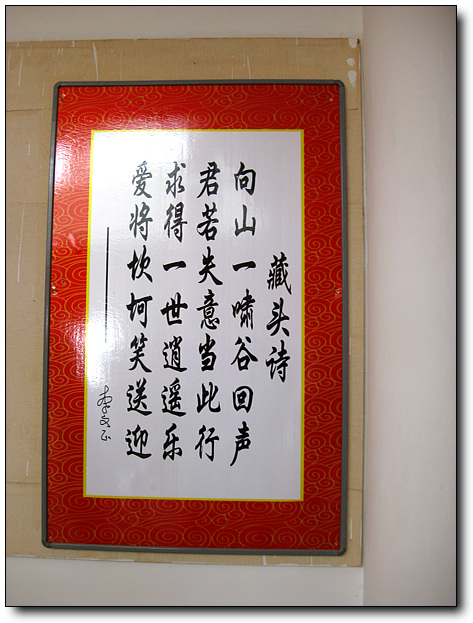 藏头诗
向山一啸谷回声
君若失意当此行
求得一世逍遥乐
爱将坎坷笑送迎